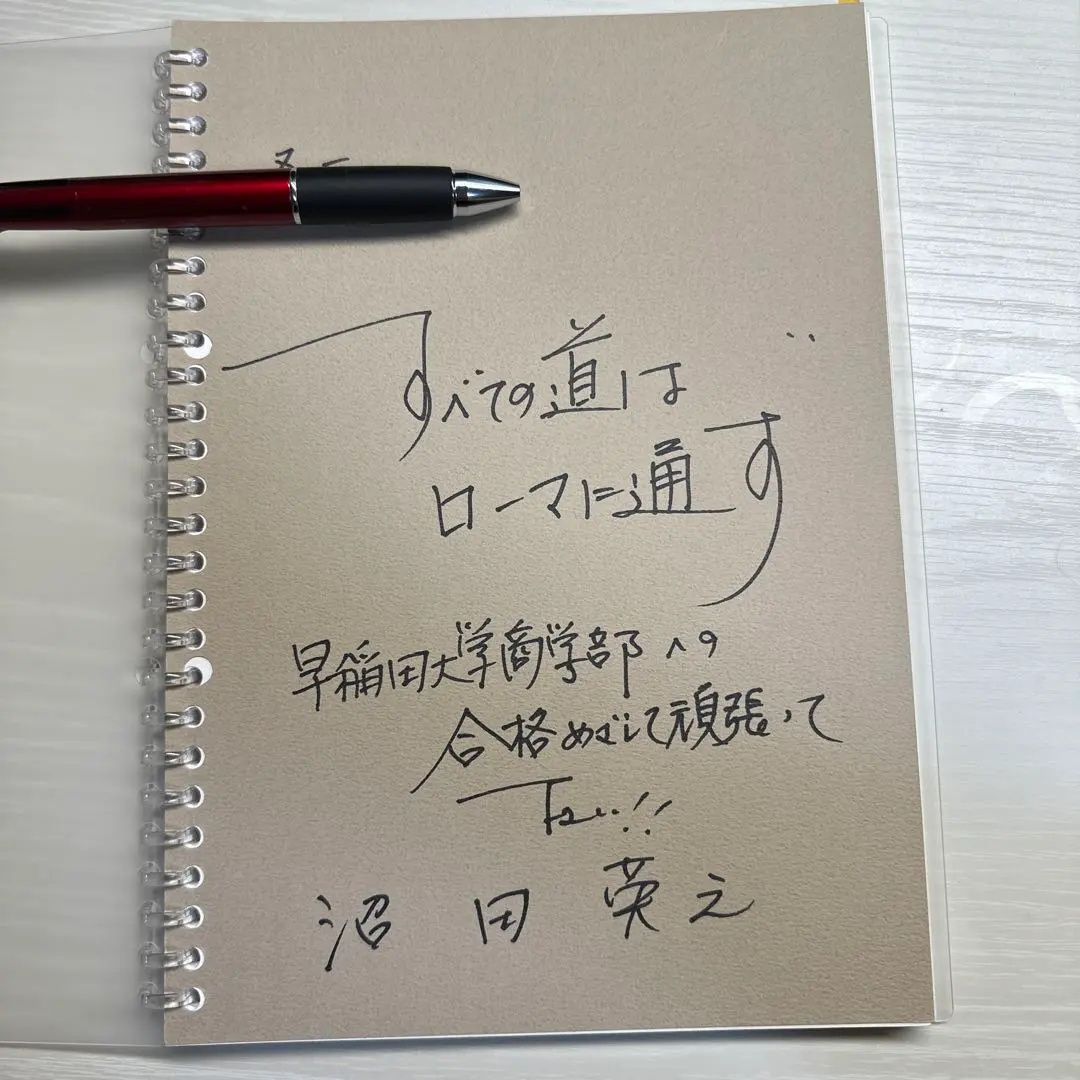 すべての道は
ローマに通ず
早稲田大学商学部への
合格めざして頑張って
下さい!!
沼田英之